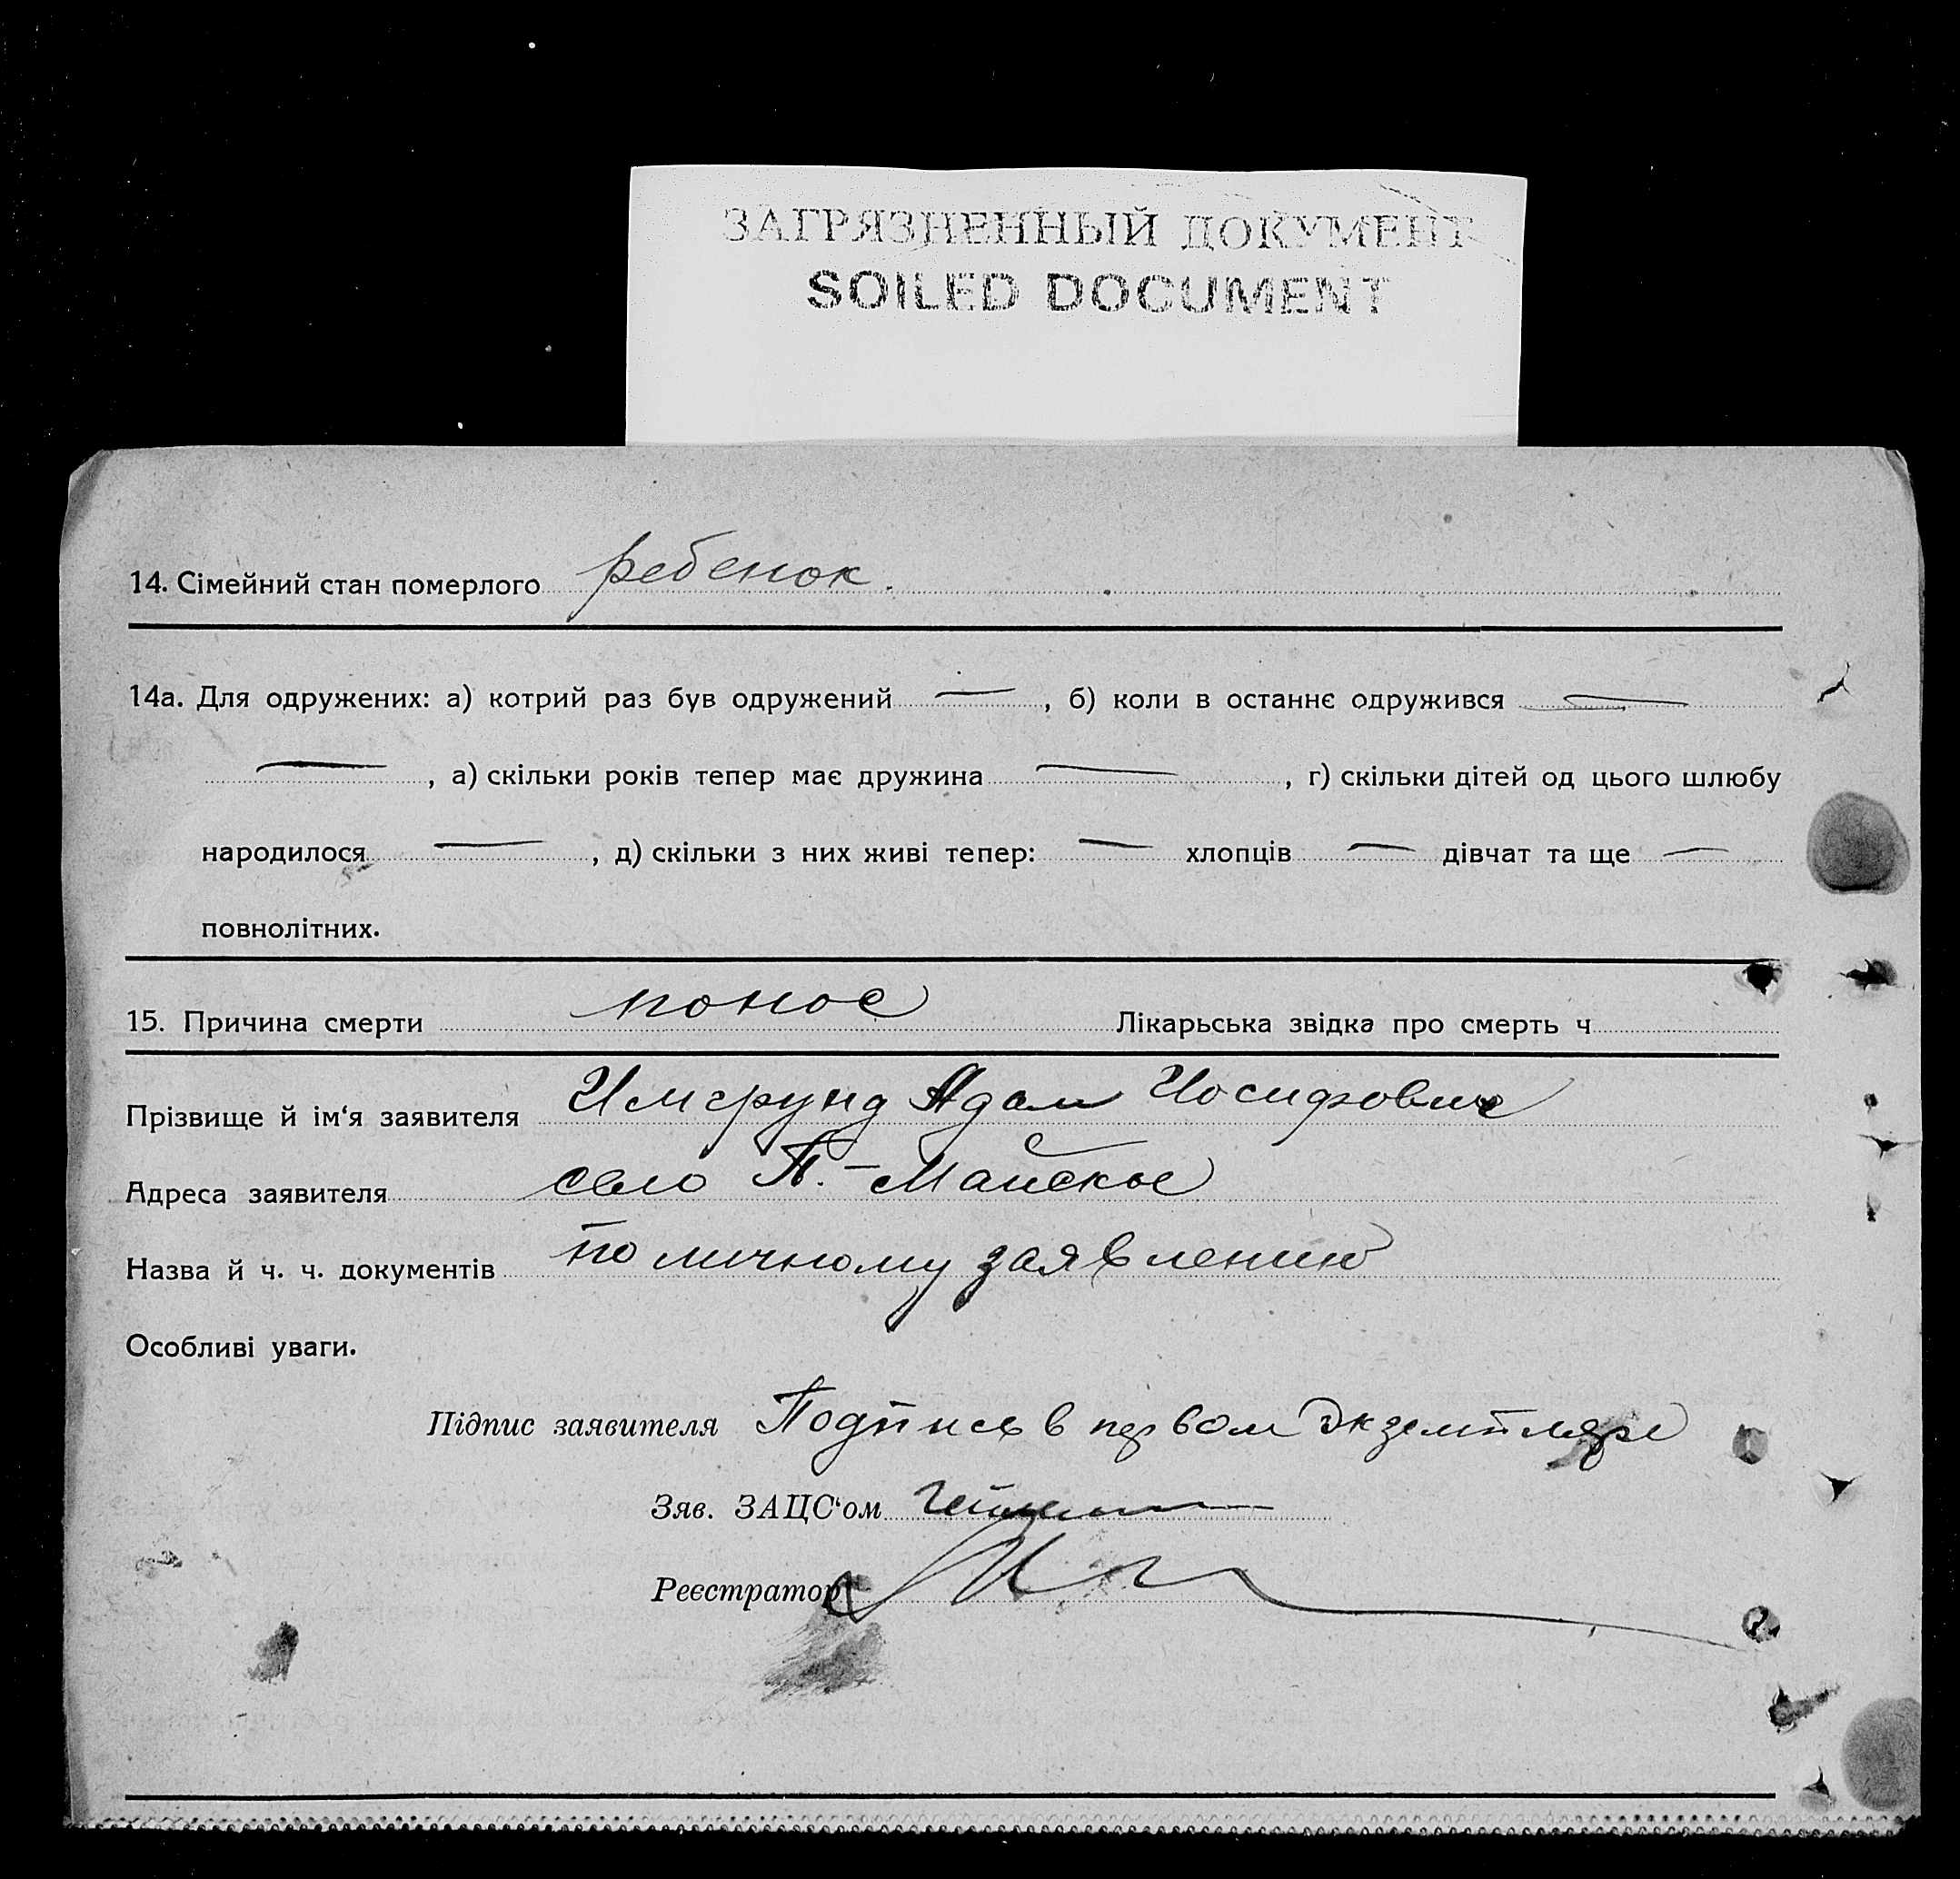 ЗАГРЯЗНЕННЫЙ ДОКУМЕНТ
SOILED DOCUMENT
14. Сімейний стан померлого ребенок.
14а. Для одружених: а) котрий раз був одружений — , б) коли в останнє одружився —
— , а) скільки років тепер має дружина — , г) скільки дітей од цього шлюбу
народилося — , д) скільки з них живі тепер: — хлопців — дівчат та ще —
повнолітних.
15. Причина смерти понос Лікарьська звідка про смерть ч
Прізвище й ім‘я заявителя Имгрунд Адам Иосифович
Адреса заявителя село П.-Майское
Назва й ч. ч. документів по личному заявлению
Особливі уваги.
Підпис заявителя Подпись в первом экземпляре
Зяв. ЗАЦС‘ом
Реєстратор